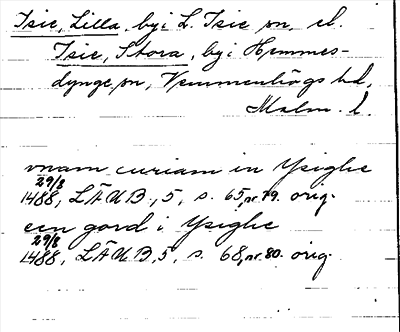 Isie, Lilla, by i L. Isie sn, el.
Isie, Stora, by i Hemmes-
dynge sn, Vemmenhögs hd,
Malm. l.
vnam curiam in Ysighe
29/8
1488, LÄUB, 5, s. 65, nr. 79. orig.
een gord i Ysighe
29/8
1488, LÄUB, 5, s. 68, nr. 80. orig.